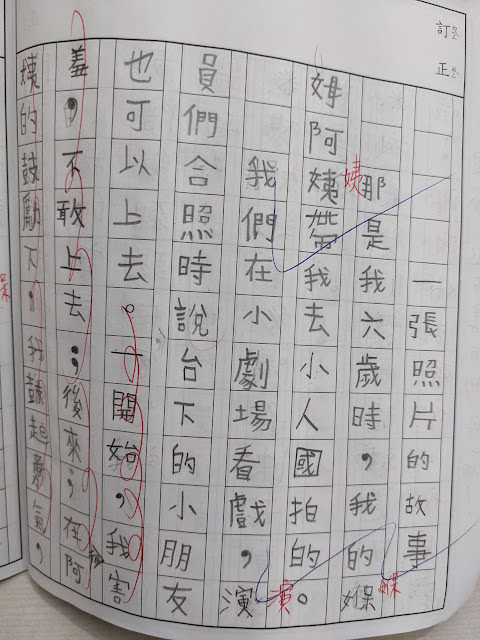 訂正
一張照片的故事
那是我六歲時，我的媬
媬
姆阿姨帶我去小人國拍的。
姨
我們在小劇場看戲，演
演
員們合照時說台下的小朋友
也可以上去。一開始，我害
羞，不敢上去；後來，在阿
姨的鼓勵下，我鼓起勇氣，